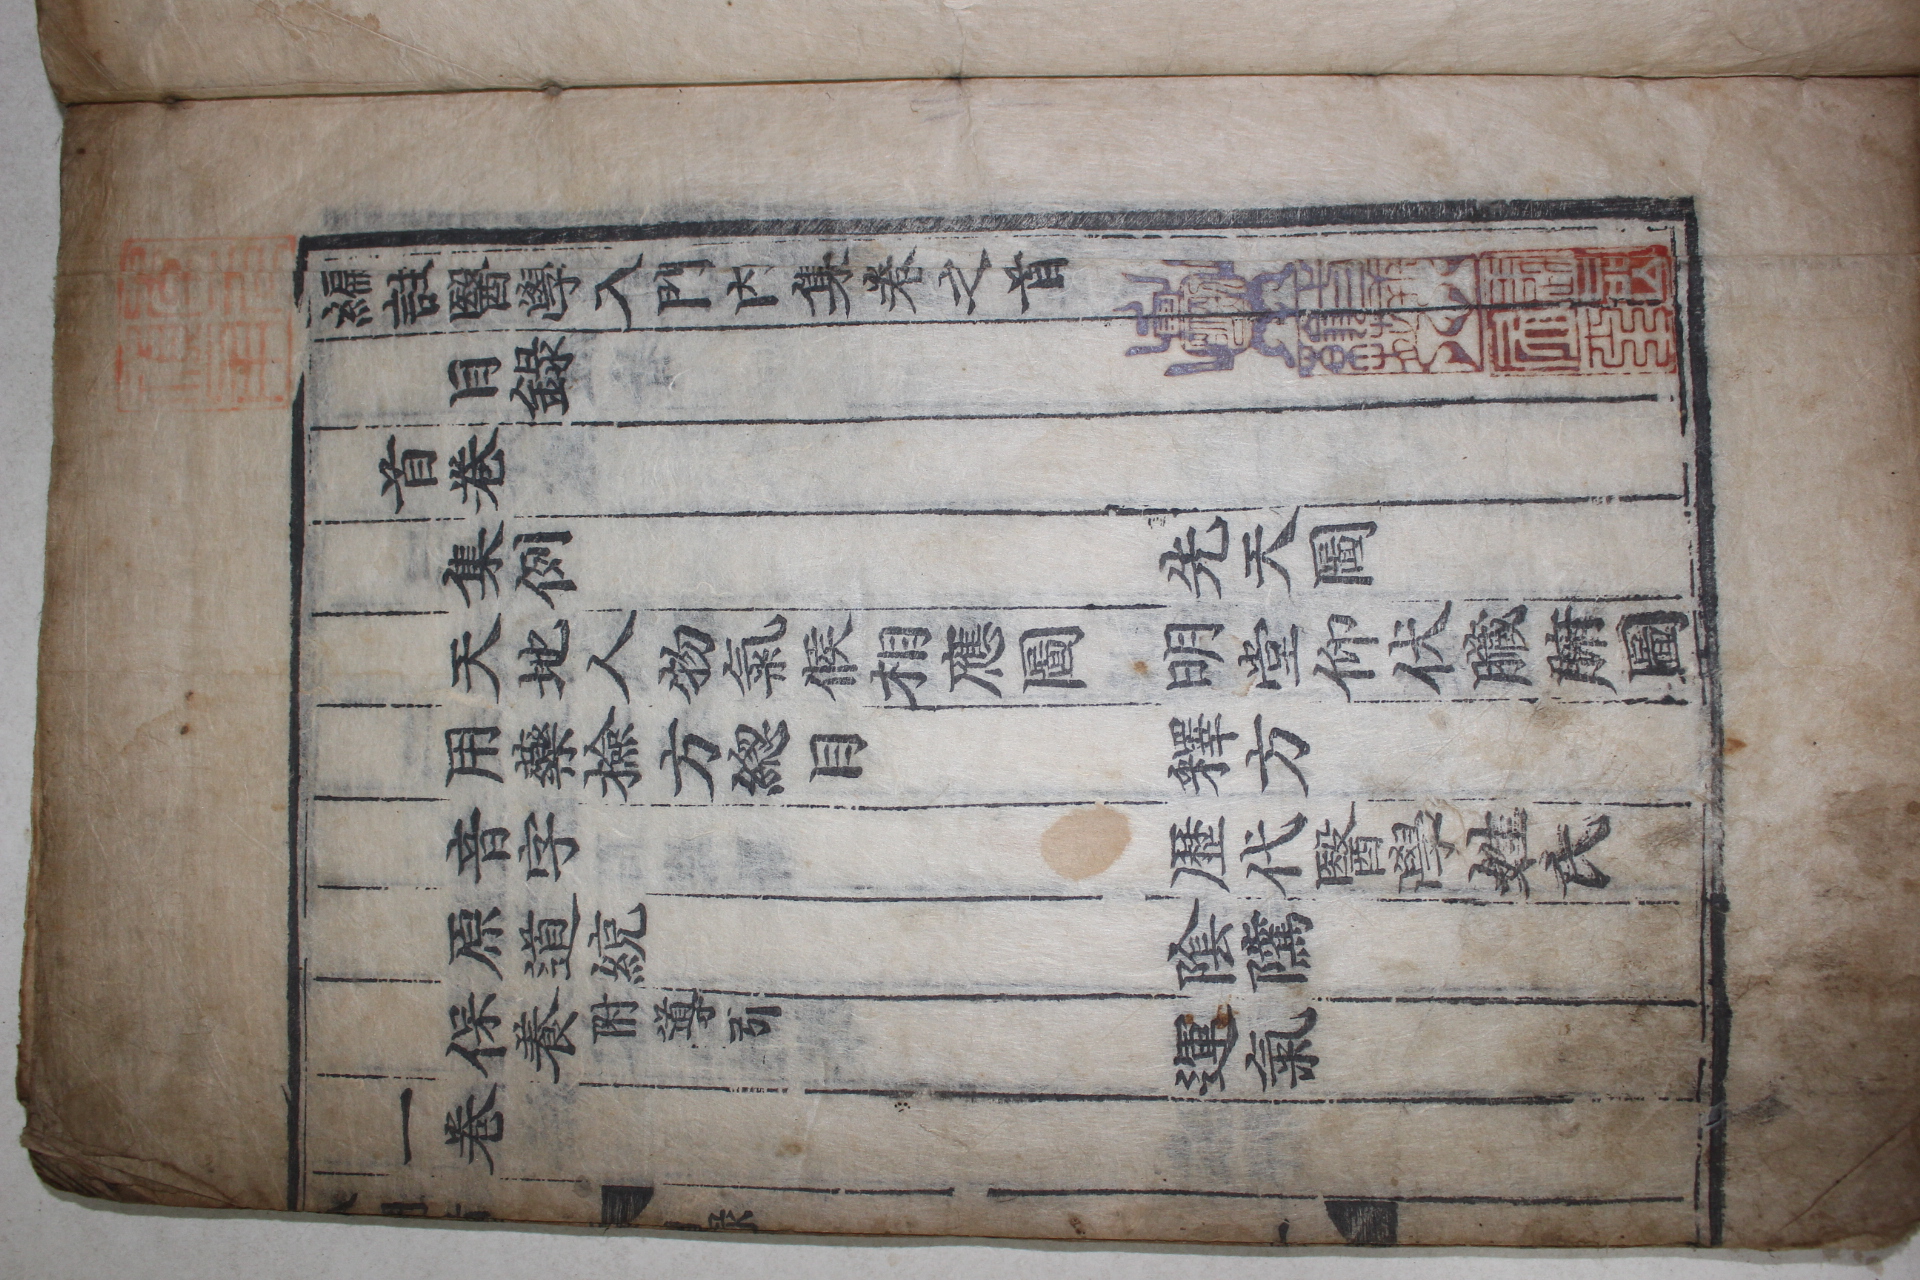 編註醫學入門內集卷之首
目錄
首卷
集例 先天圖
天地人物氣候相應圖 明堂仰伏臟腑圖
用藥撿方緫目 釋方
音字 歷代醫學姓氏
原道統 陰隲
保養附導引 運氣
一卷